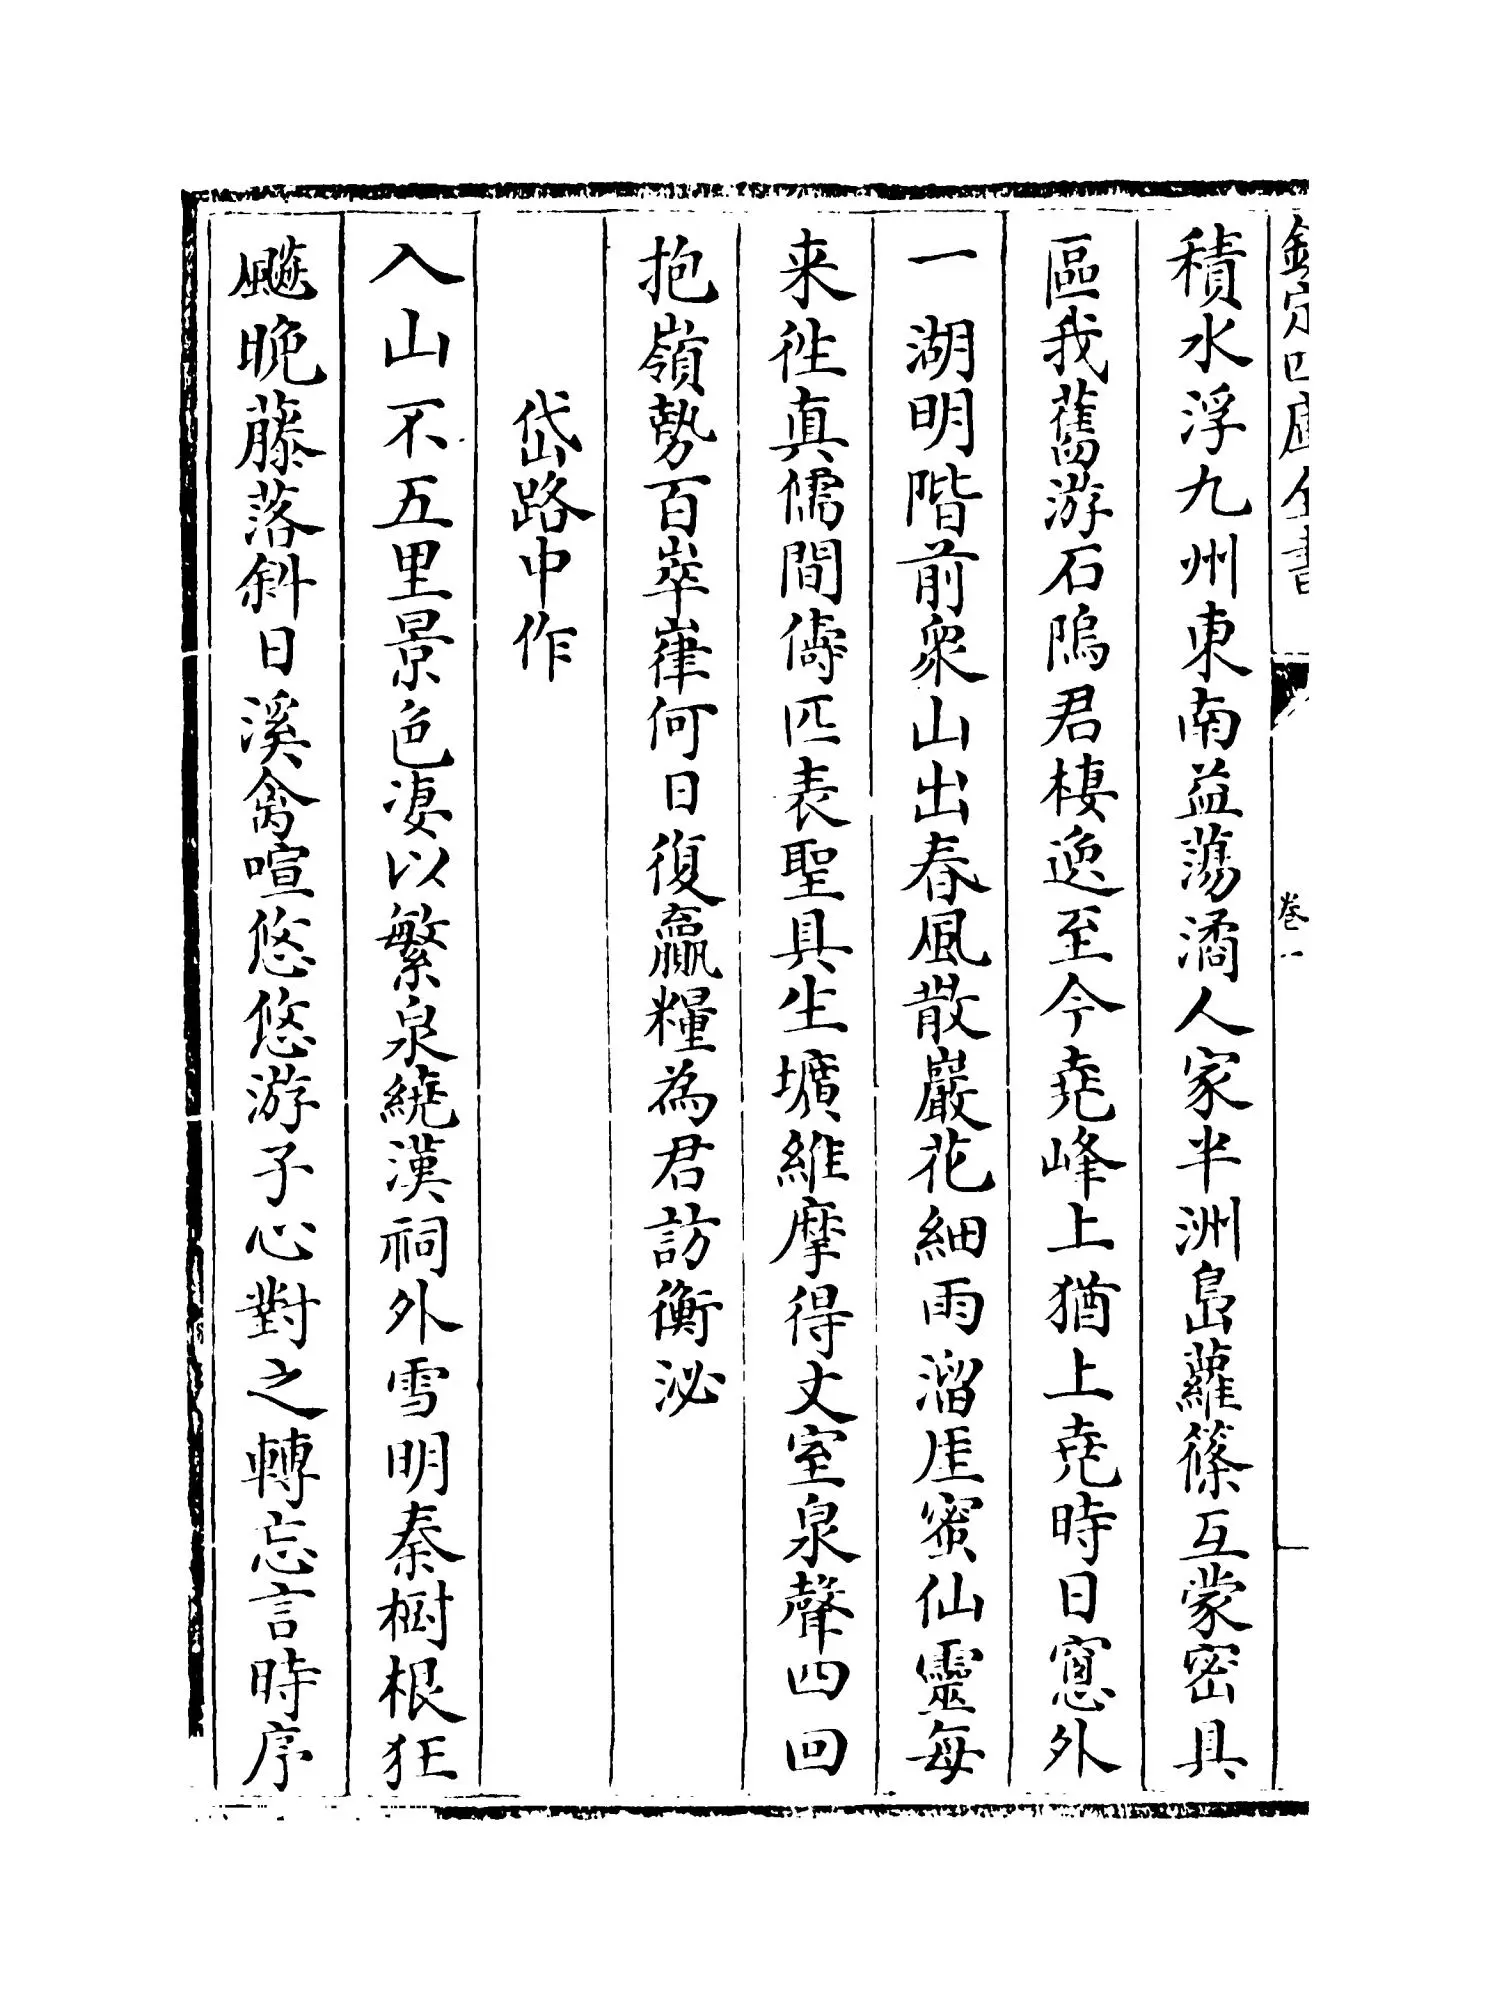 欽定四庫全書
卷一
積水浮九州東南益蕩潏人家半洲島蘿篠互蒙密具
區我舊游石隝君棲逸至今堯峰上猶上堯時日窻外
一湖明階前衆山出春風散巖花細雨溜厓蜜仙靈每
来徃真儒間儔匹表聖具生壙維摩得丈室泉聲四回
抱嶺勢百崒嵂何日復贏糧為君訪衡泌
岱路中作
入山不五里景色凄以繁泉繞漢祠外雪明秦樹根狂
飈晚藤落斜日溪禽喧悠悠游子心對之轉忘言時序